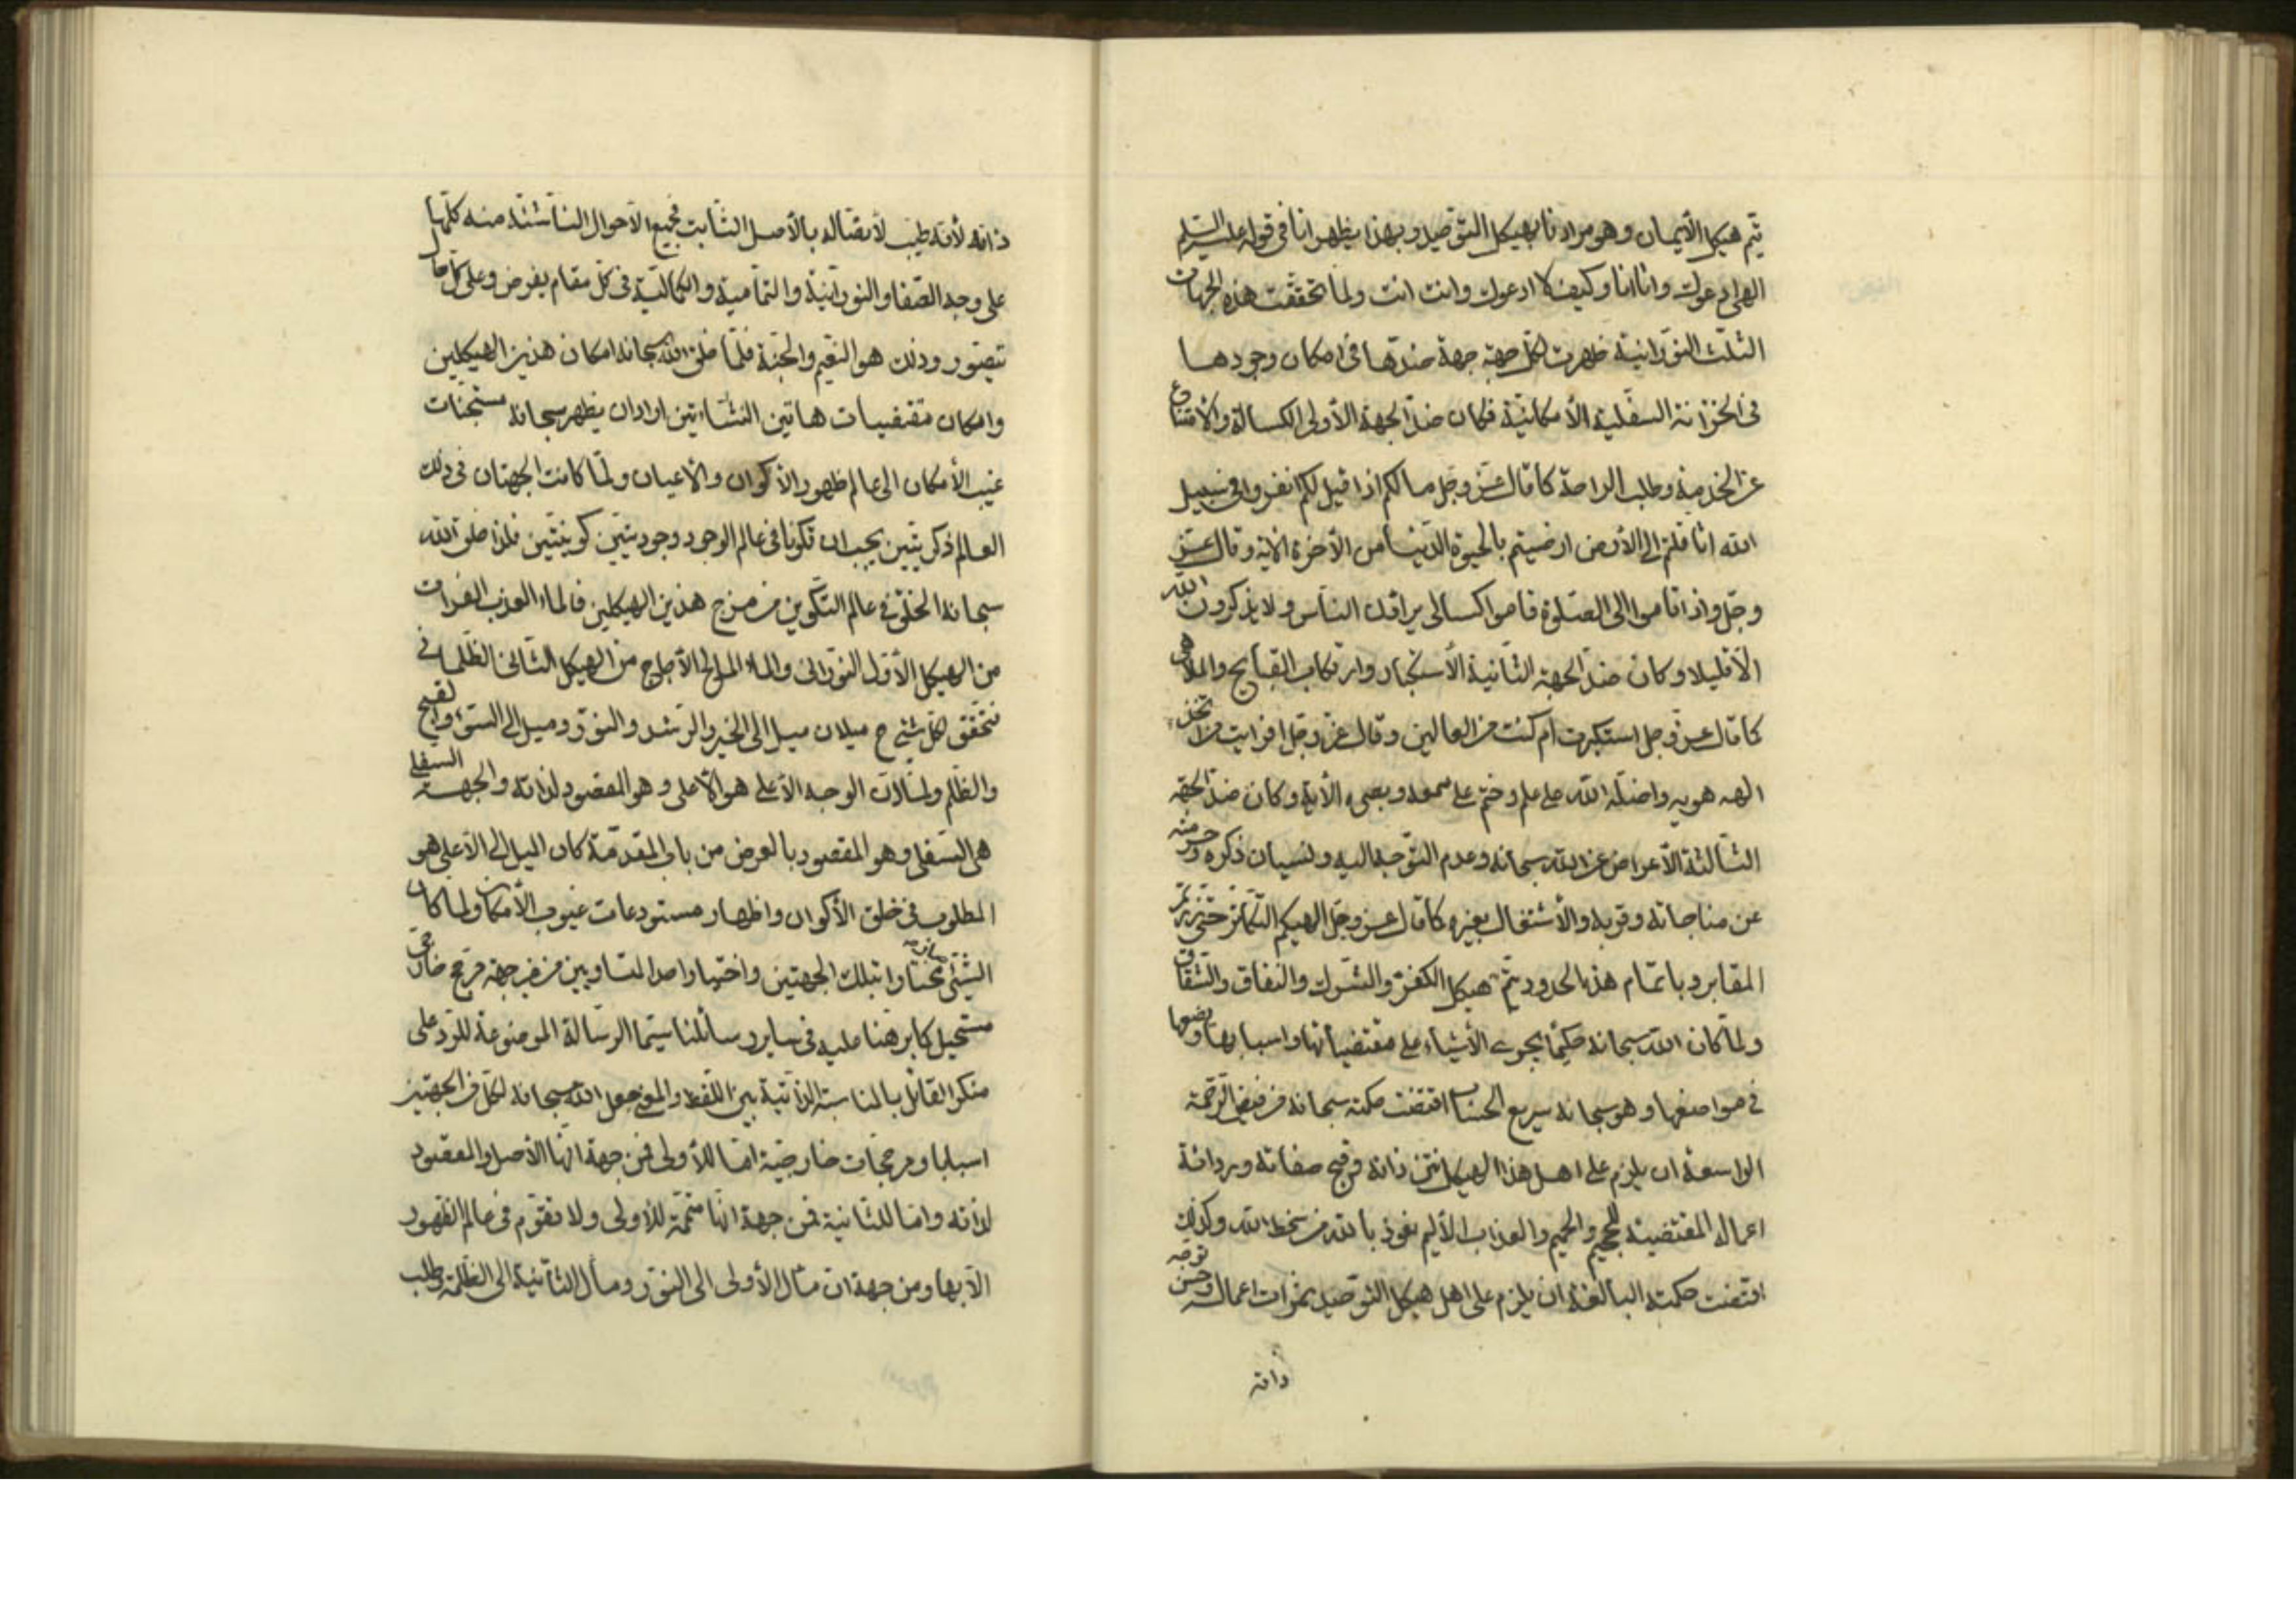 يتم هيكل الأيمان وهو مرادنا بهيكل التوحيد وبهذا يظهر انا في قوله عليه السلم
الهى ادعوك وانا انا وكيف لا ادعوك وانت انت ولما تحققت هذه الجهات
الثلث النورانية ظهرت لكل جهة جهة ضدها في امكان وجودها
في الخزانة السفلية الأمكانية فكان ضد الجهة الأولى الكسالة والامتناع
عن الخدمة وطلب الراحة كما قال عز وجل مالكم اذا قيل لكم انفروا في سبيل
الله اثاقلتم الى الأرض ارضيتم بالحيوة الدنيا من الأخرة الاية وقال عز
وجل واذا قاموا الى الصلوة قاموا كسالى يراؤن الناس ولا يذكرون الله
الا قليلا وكان ضد الجهة الثانية الأستكبار وارتكاب القبايح والملاهى
كما قال عز وجل استكبرت ام كنت من العالين وقال عز وجل افرايت من اتخذ
الهه هويه واضله الله على علم وختم على سمعه وبصره الأية وكان ضد الجهة
الثالثة الأعراض عن الله سبحانه وعدم التوجه اليه ونسيان ذكره و
عن مناجاته وقربه والأشتغال بغيره كما قال عز وجل الهيكم التكاثر حتى زرتم
المقابر وباتمام هذه الحدود يتم هيكل الكفر والشرك والنفاق والشقاق
ولما كان الله سبحانه حكيما يجرى الأشياء على مقتضياتها واسبابها ويضعها
في مواضعها وهو سبحانه سريع الحساب اقتضت حكمته سبحانه من فيض الرحمة
الواسعة ان يلزم على اهل هذا الهيكل نتن ذاته وقبح صفاته وردائة
اعماله المقتضية للجحيم والحميم والعذاب الأليم نعوذ بالله من سخط الله وكذلك
اقتضت حكمته البالغة ان يلزم على اهل هيكل التوحيد ثمرات اعماله وحسن توجه
ذاته
ذاته لأنه طيب لأتصاله بالأصل الثابت فجميع الأحوال الناشئة منه كلها
على وجه الصفا والنورانية والتمامية والكمالية في كل مقام يفرض وعلى كل ما
يتصور وذلك هو النعيم والجنة فلما خلق الله سبحانه امكان هذين الهيكلين
وامكان مقتضيات هاتين النشاءتين اراد ان يظهر سبحانه مستجنات
غيب الأمكان الى عالم ظهور الأكوان والأعيان ولما كانت الجهتان في ذلك
العالم ذكريتين يجب ان تكونا في عالم الوجود وجوديتين كونيتين فلذا خلق الله
سبحانه الخلق في عالم التكوين من مزج هذين الهيكلين فالماء العذب الفرات
من الهيكل الأول النورانى والماء المالح الأجاج من الهيكل الثانى الظلمانى
فتحقق لكل شئ ح ميلان ميل الى الخير والرشد والنور وميل الى السوء والقبح
والظلم ولما كان الوجه الأعلى هو الأعلى وهو المقصود لذاته والجهة السفلى
هى السفلى وهو المقصود بالعرض من باب المقدمة كان الميل الى الأعلى هو
المطلوب في خلق الأكوان واظهار مستودعات غيوب الأمكان ولما كان
الشئ مختارا بتلك الجهتين واختيار احد المتساويين من غير جهة مرجح خارجى
مستحيل كما برهنا عليه في ساير رسائلنا سيما الرسالة الموضوعة للرد على
منكر القائل بالمناسبة الذاتية بين اللفظ والمعنى جعل الله سبحانه لكل من الجهتين
اسبابا ومرجحات خارجية اما للأولى فمن جهة انها الأصل والمقصود
لذاته واما للثانية فمن جهة انها متممة للأولى ولا تقوم في عالم الظهور
الا بها ومن جهة ان مآل الأولى الى النور ومآل الثانية الى الظلمة وطلب